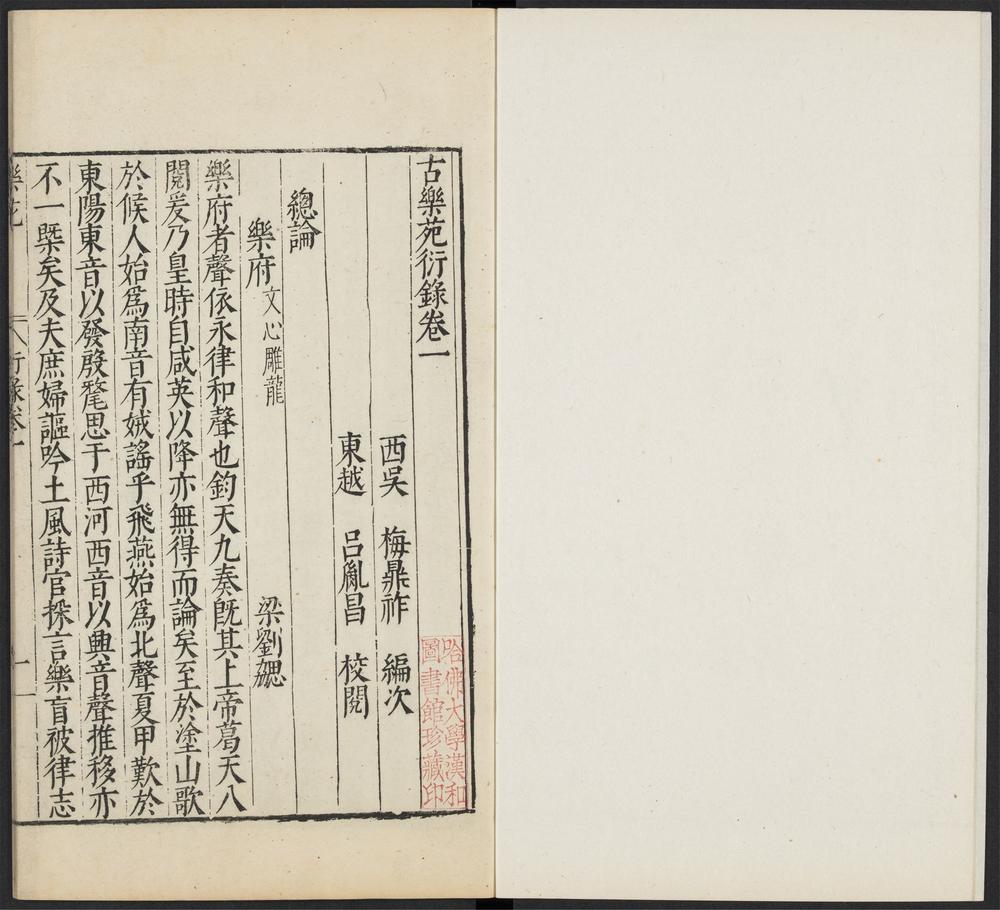 古樂苑衍錄卷一
西吳 梅鼎祚 編次
東越 呂胤昌 校閱
總論
樂府 文心雕龍 梁劉勰
樂府者聲依永律和聲也鈞天九奏旣其上帝葛天八
閱爰乃皇時自咸英以降亦無得而論矣至於塗山歌
於候人始爲南音有娀謠乎飛燕始爲北聲夏甲歎於
東陽東音以發殷氂思于西河西音以興音聲推移亦
不一槩矣及夫庶婦謳吟土風詩官採言樂盲被律志
樂苑 衍錄卷一 一
哈佛大學漢和
圖書館珍藏印